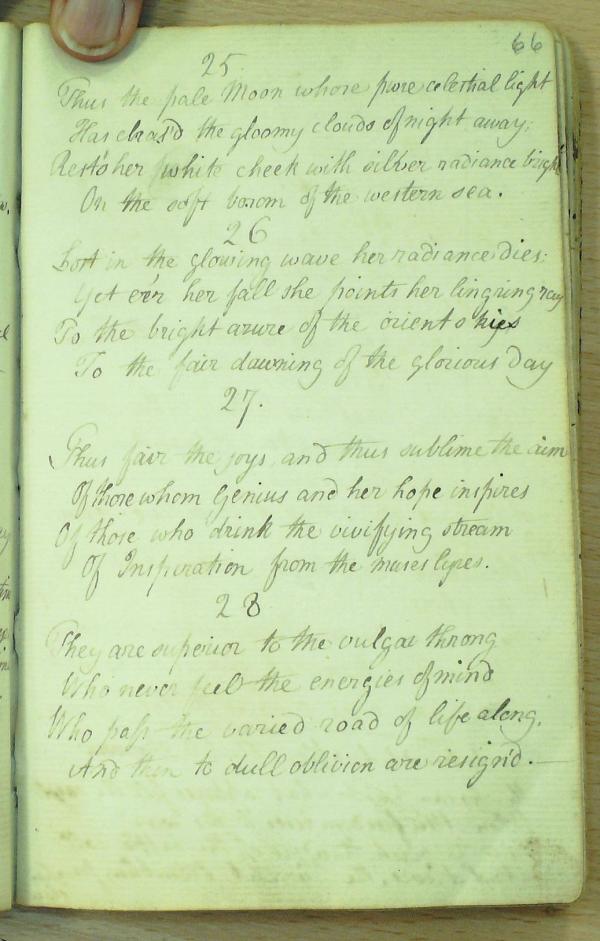 66
25
Thus the pale Moon whose pure celestial light
Has chas'd the gloomy clouds of night away;
Rests her white cheek with silver radiance bright
On the soft bosom of the western sea.
26
Lost in the glowing wave her radiance dies;
Yet e'er her fall she points her ling'ring ray
To the bright azure of the orient skies
To the fair dawning of the glorious day
27.
Thus fair the joys and thus sublime the aim
Of those whom Genius and her hope inspires
Of those who drink the vivifying stream
Of Inspiration from the muses lyres.
28
They are superior to the vulgar throng
Who never feel the energies of mind
Who pass the varied road of life along,
And then to dull oblivion are resign'd.—